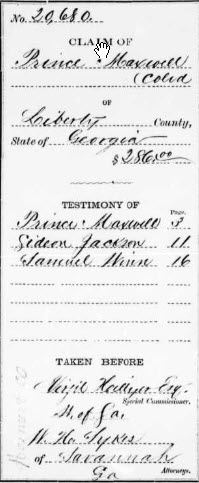 No. 20,680.
CLAIM OF
Prince Maxwell
(Colid
OF
Liberty County,
State of Georgia
$ 286.00
TESTIMONY OF
Page.
Prince Maxwell 3
Gideon Jackson 11
Samuel Winn 16
TAKEN BEFORE
Virgil Hillyer Esq.
Special Commissioner.
St. of Ga.
W. H. Sykes
of Savannah
Attorneys.
Ga